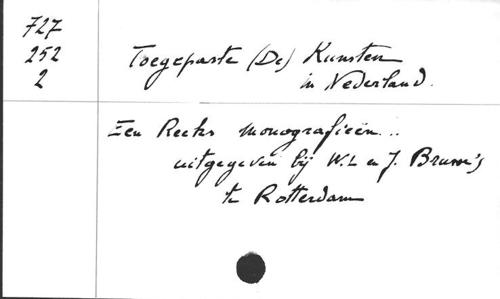 727
252
2
Toegepaste (De) Kunsten
in Nederland.
Een Reeks monografieën..
uitgegeven bij W.L en J. Brusse's
te Rotterdam